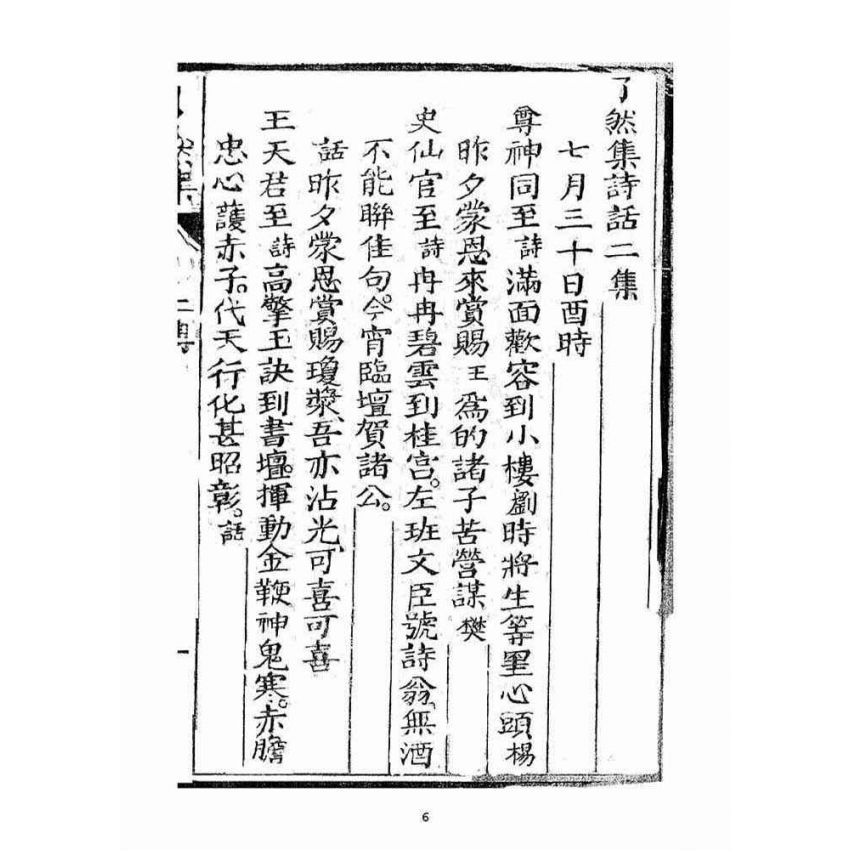 了然集詩話二集
七月三十日酉時
尊神同至詩滿面歡容到小樓劉時將生等罣心頭楊
昨夕蒙恩來賞賜王為的諸子苦營謀樊
史仙官至詩冉冉碧雲到桂宮。左班文臣號詩翁、無酒
不能聯佳句。今宵臨壇賀諸公。
話昨夕蒙恩賞賜瓊漿、吾亦沾光、可喜可喜
王天君至詩高擎玉訣到書壇。揮動金鞭神鬼寒。赤膽
忠心護赤子。代天行化甚昭彰。話
6